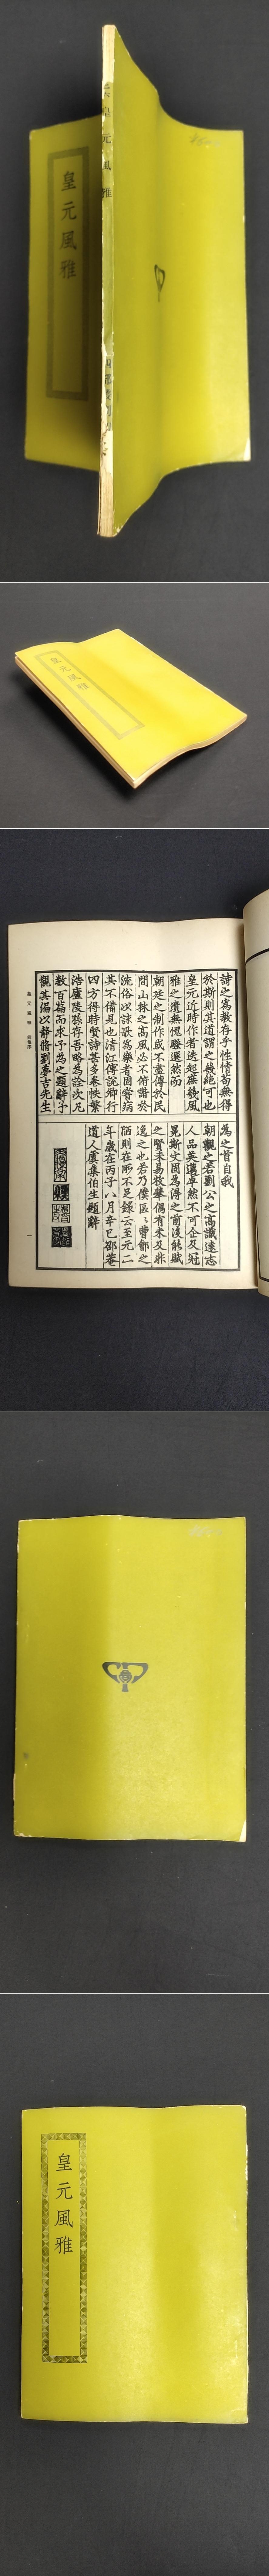 皇元風雅
皇元風雅
四部叢刊
皇元風雅
詩之為教存乎性情苟無得
於斯則其道謂之幾絕可也
皇元近時作者迭起庶幾風
雅之遺無愧騷選然而
朝廷之制作或不盡傳於民
間山林之高風必不俯諧於
流俗以詠歌為樂者固嘗病
其不備見也清江傅說卿行
四方得時賢詩甚多卷帙繁
浩廬陵孫存吾略為詮次凡
數百篇而求予為之題辭予
觀其編以靜脩劉夢吉先生
為之首自我
朝觀之若劉公之高識遠志
人品英邁卓然不可企及冠
冕斯文固為得之前後能賦
之賢未易枚舉偶有未及非
逸之也若乃僕區曹鄶之
陋則在所不足錄云至元二
年歲在丙子八月辛巳邵菴
道人虞集伯生題辭
皇元風雅 前集序
一
皇元風雅